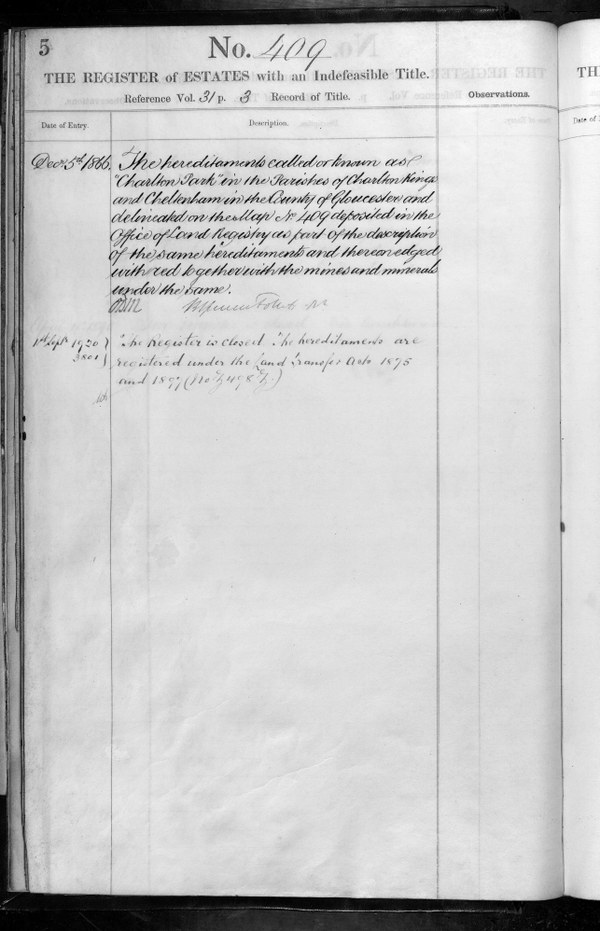 5
No. 409
THE REGISTER of ESTATES with an Indefeasible Title.
Reference Vol. 31 p. 3 Record of Title.
Observations.
Date of Entry.
Description.
Decr 5th 1866.
The hereditaments called or known as
"Charlton Park" in the Parishes of Charlton Kings
and Cheltenham in the County of Gloucester and
delineated on the Map No 409 deposited in the
Office of Land Registry as part of the description
of the same hereditaments and thereon edged
with red together with the mines and minerals
under the same.
1st Septr 1920
3801
The Register is closed The hereditaments are
registered under the Land Transfer Acts 1875
and 1897
TH
Date of